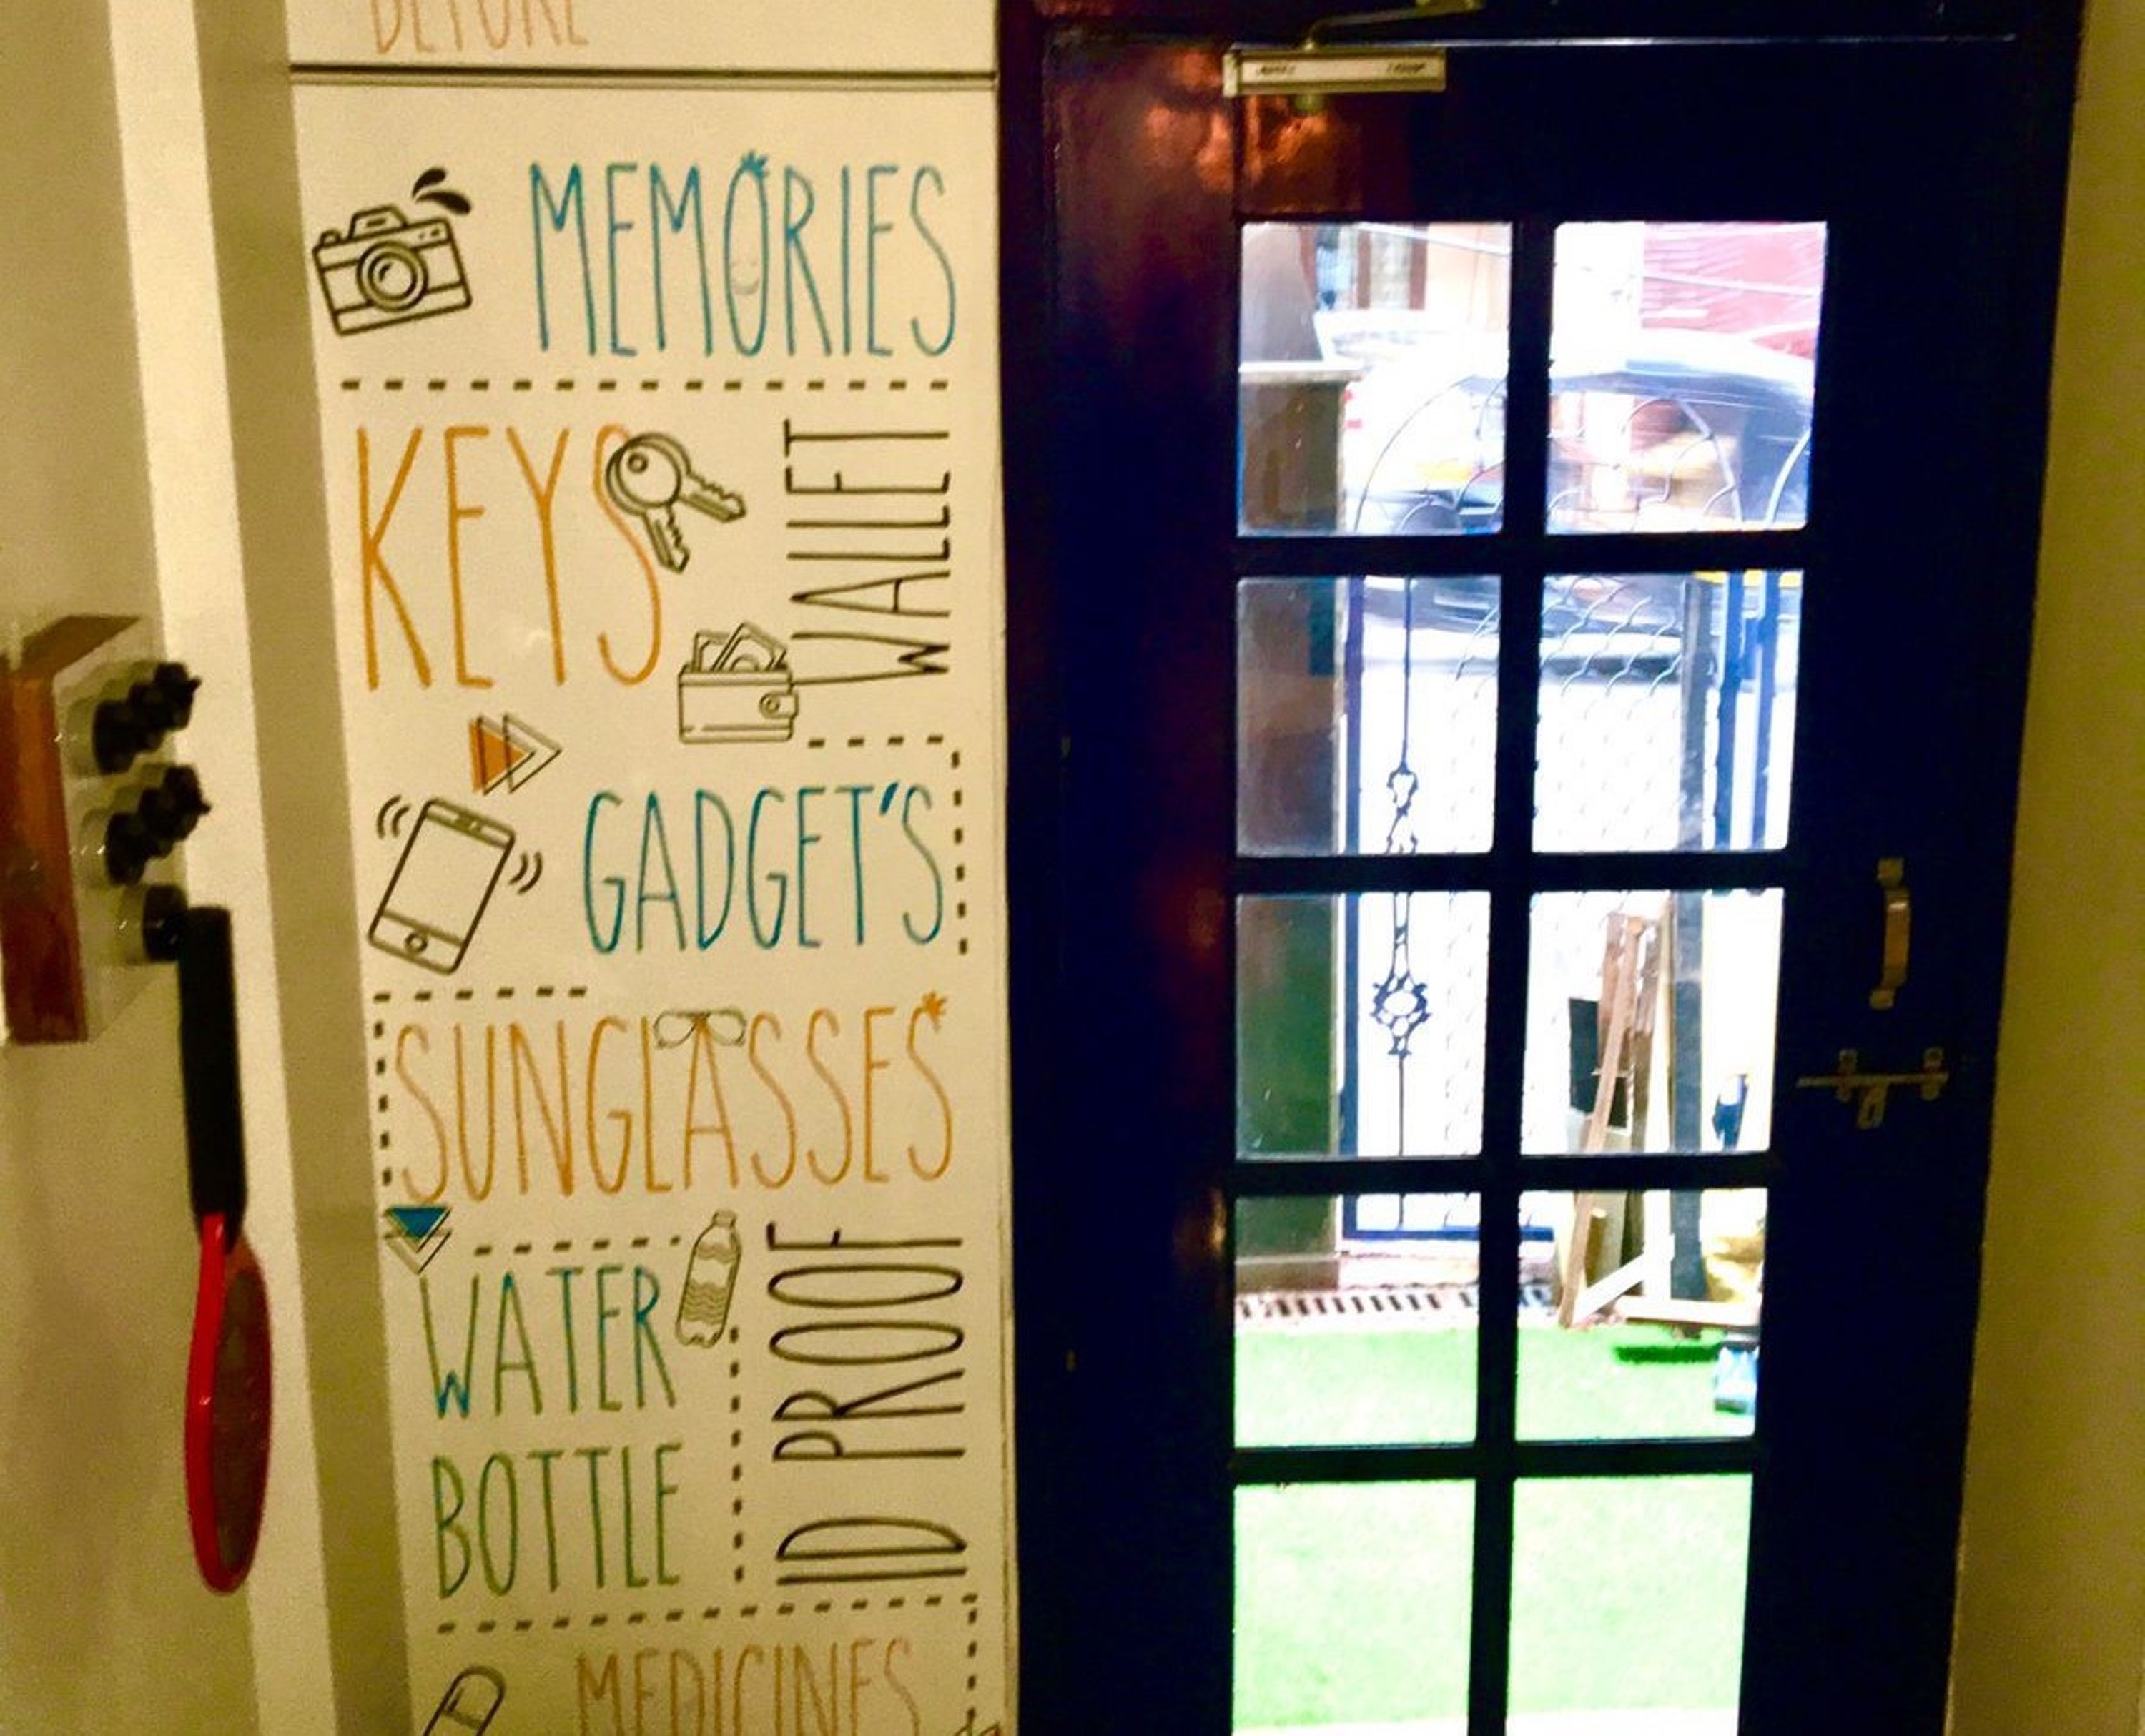 BEFORE
MEMORIES
KEYS
WALLET
GADGET'S
SUNGLASSES
WATER
BOTTLE
ID PROOF
MEDICINES